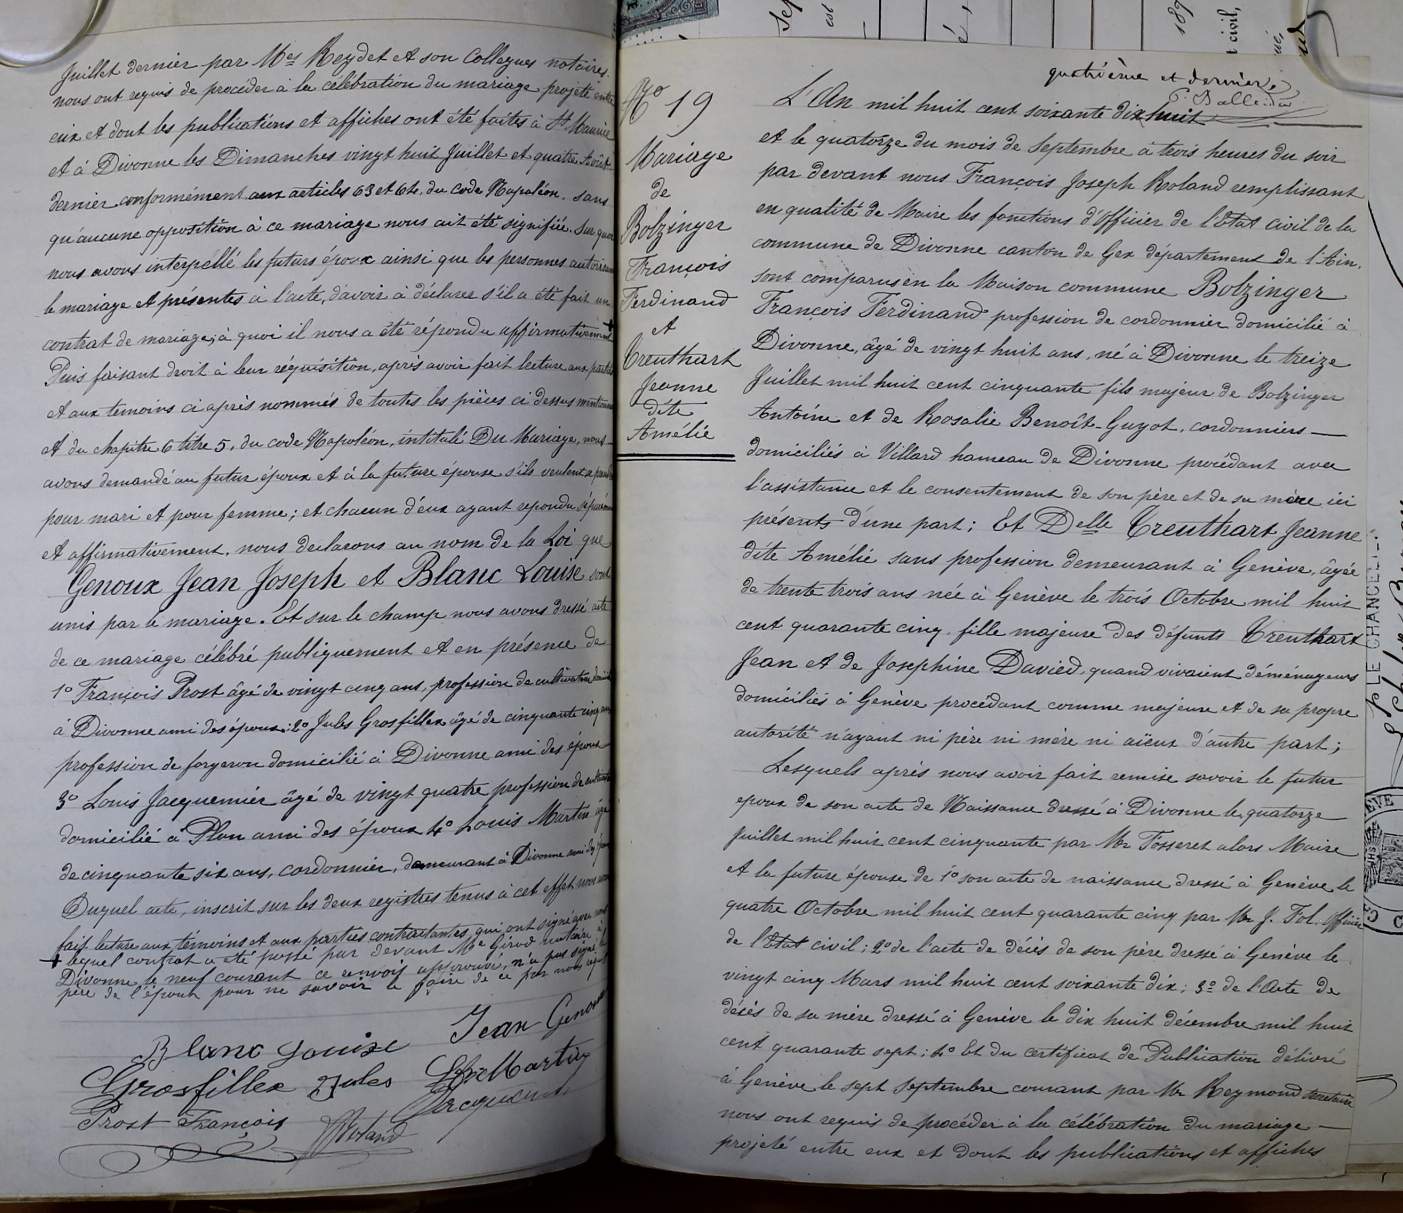 Juillet dernier par Mes Reydet et son Collegues notaires.
nous ont requis de procéder à la célébration du mariage projeté entre
eux et dont les publications et affiches ont été faites à St Maurice
et à Divonne les Dimanches vingt huit Juillet et quatre Août
dernier conformément aux articles 63 et 64, du Code Napoléon. sans
qu'aucune opposition à ce mariage nous ait été signifiée. Sur quoi
nous avons interpellé les futurs époux ainsi que les personnes autorisant
le mariage et présentes à l'acte, d'avoir à déclarer s'il a été fait un
contrat de mariage, à quoi il nous a été répondu affirmativement +
Puis faisant droit à leur réquisition, après avoir fait lecture aux parties
et aux témoins ci après nommés de toutes les pièces ci dessus mentionnées
et du chapitre 6 titre 5, du code Napoléon, intitulé Du Mariage, nous
avons demandé au futur époux et à la future épouse s'ils veulent se prendre
pour mari et pour femme; et chacun d'eux ayant répondu séparément
et affirmativement, nous déclarons au nom de la Loi que
Genoux Jean Joseph et Blanc Louise sont
unis par le mariage. Et sur le champ nous avons dressé acte
de ce mariage célébré publiquement et en présence de
1o François Prost âgé de vingt cinq ans, profession de cultivateur
à Divonne ami des époux; 2o Jules Grosfillex âgé de cinquante cinq ans
profession de forgeron domicilié à Divonne ami des époux
3o Louis Jacquemier âgé de vingt quatre profession de
domicilié à Plan ami des époux 4o Louis Martin âgé
de cinquante six ans, cordonnier, demeurant à Divonne ami des
Duquel acte, inscrit sur les deux registres tenus à cet effet nous avons
fait lecture aux témoins et aux parties contractantes, qui ont signé avec nous
+ lequel contrat a été passé par devant Me Girod notaire à
Divonne le neuf courant ce renvoi approuvé, n'a pas signé le
père de l'époux pour ne savoir le faire de ce par nous
Blanc Louise Jean Genoux
Grosfillex Jules Martin
Prost François Jacquemier
Roland
quatrième et dernier.
No 19
Mariage
de
Bolzinger
François
Ferdinand
et
Treuthart
Jeanne
dite
Amélie
L'An mil huit cent soixante dix huit
et le quatorze du mois de Septembre à trois heures du soir
par devant nous François Joseph Roland remplissant
en qualité de Maire les fonctions d'officier de l'Etat civil de la
commune de Divonne canton de Gex département de l'Ain.
sont comparus en la Maison commune Bolzinger
François Ferdinand profession de cordonnier domicilié à
Divonne, âgé de vingt huit ans, né à Divonne le treize
Juillet mil huit cent cinquante fils majeur de Bolzinger
Antoine et de Rosalie Benoît-Guyot, cordonniers
domiciliés à Villard hameau de Divonne procédant avec
l'assistance et le consentement de son père et de sa mère ici
présents d'une part; Et Delle Treuthart Jeanne
dite Amélie sans profession demeurant à Genève, âgée
de trente trois ans née à Genève le trois Octobre mil huit
cent quarante cinq. fille majeure des défunts Treuthart
Jean et de Josephine David, quand vivaient déménageurs
domiciliés à Genève procédant comme majeure et de sa propre
autorité n'ayant ni père ni mère ni aïeux d'autre part;
Lesquels après nous avoir fait remise savoir le futur
époux de son acte de Naissance dressé à Divonne le quatorze
Juillet mil huit cent cinquante par Mr Fosseret alors Maire
et la future épouse de 1o son acte de naissance dressé à Genève le
quatre Octobre mil huit cent quarante cinq par Mr J. Fol. officier
de l'Etat civil; 2o de l'acte de décès de son père dressé à Genève le
vingt cinq Mars mil huit cent soixante dix; 3o de l'acte de
décès de sa mère dressé à Genève le dix huit décembre mil huit
cent quarante sept; 4o Et du certificat de Publication délivré
à Genève le sept Septembre courant par Mr Reymond secrétaire
nous ont requis de procéder à la célébration du mariage
projeté entre eux et dont les publications et affiches
LE CHANCELIER